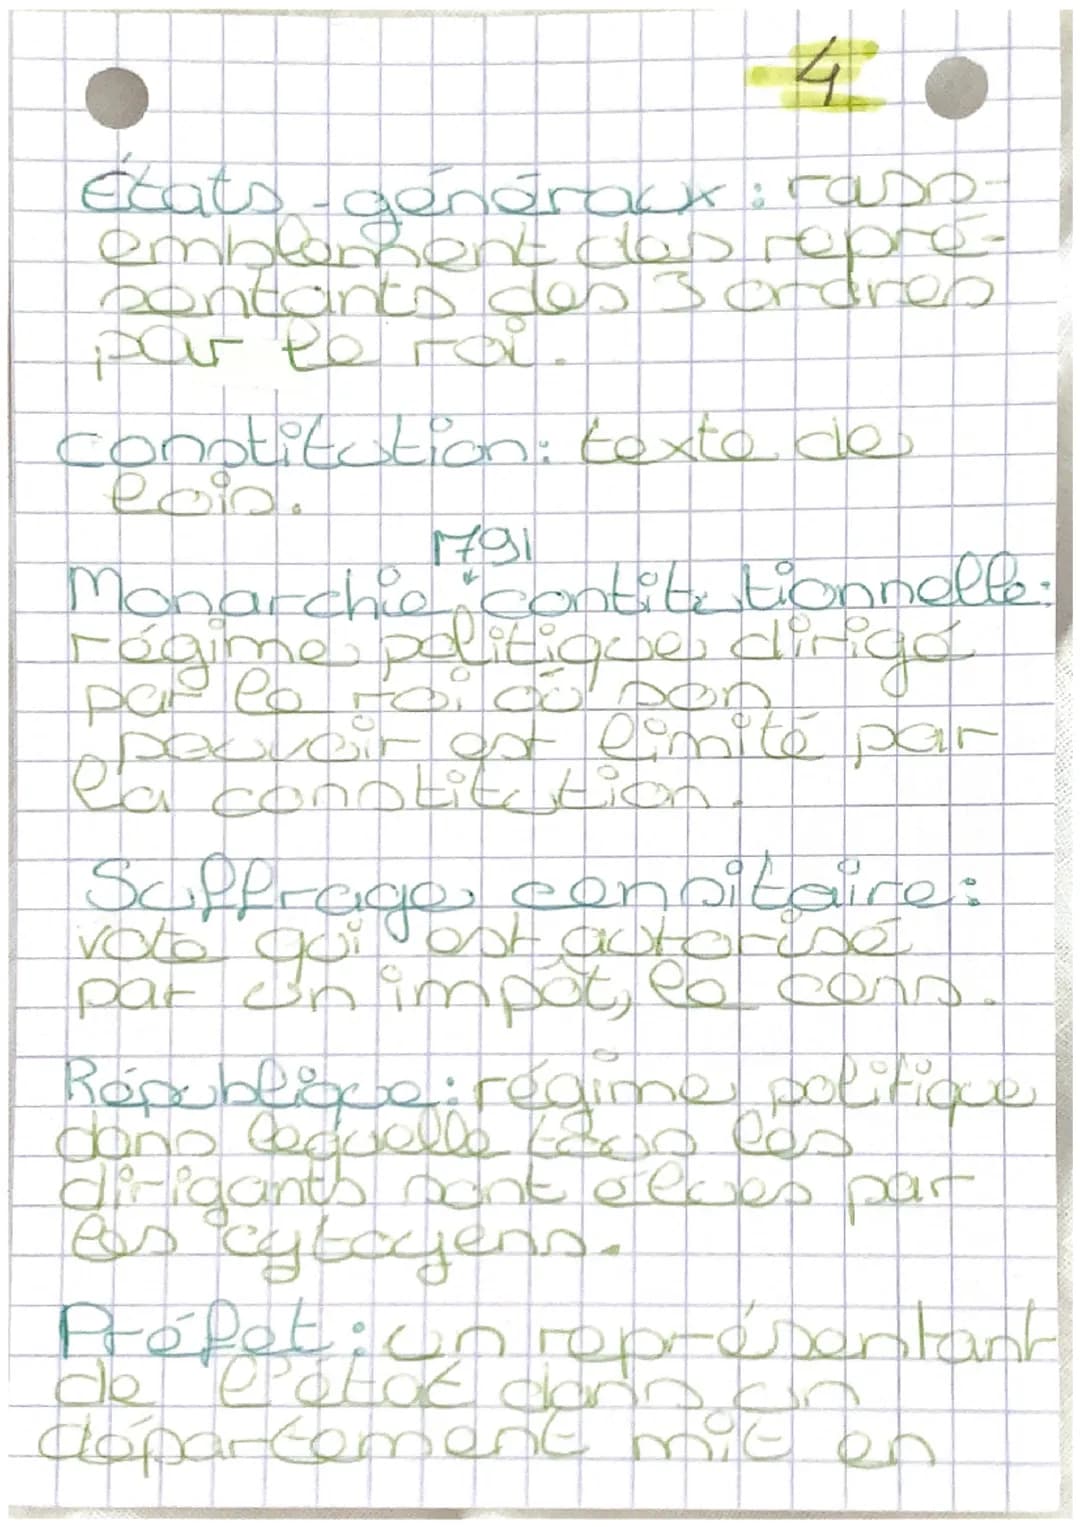 4
États-généraux : rass-
emblement des repré-
sentants des 3 ordres
par le roi.
constitution : texte de
lois.
1791
Monarchie contitutionnelle :
régime politique dirigé
par le roi où son
pouvoir est limité par
la constitution.
Suffrage censitaire :
vote qui est autorisé
par un impôt, le cens.
République : régime politique
dans lequelle tous les
dirigants sont élues par
les cytoyens.
Préfet : un représentant
de l'état dans un
département mit en